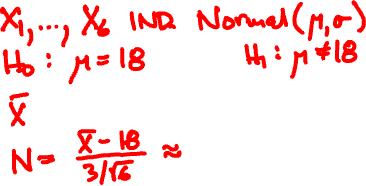 X₁, ..., X₆ IND Normal(μ, σ)
H₀ : μ = 18 H₁ : μ ≠ 18
X̄
N = (X̄ - 18)/(3/√6) ≈